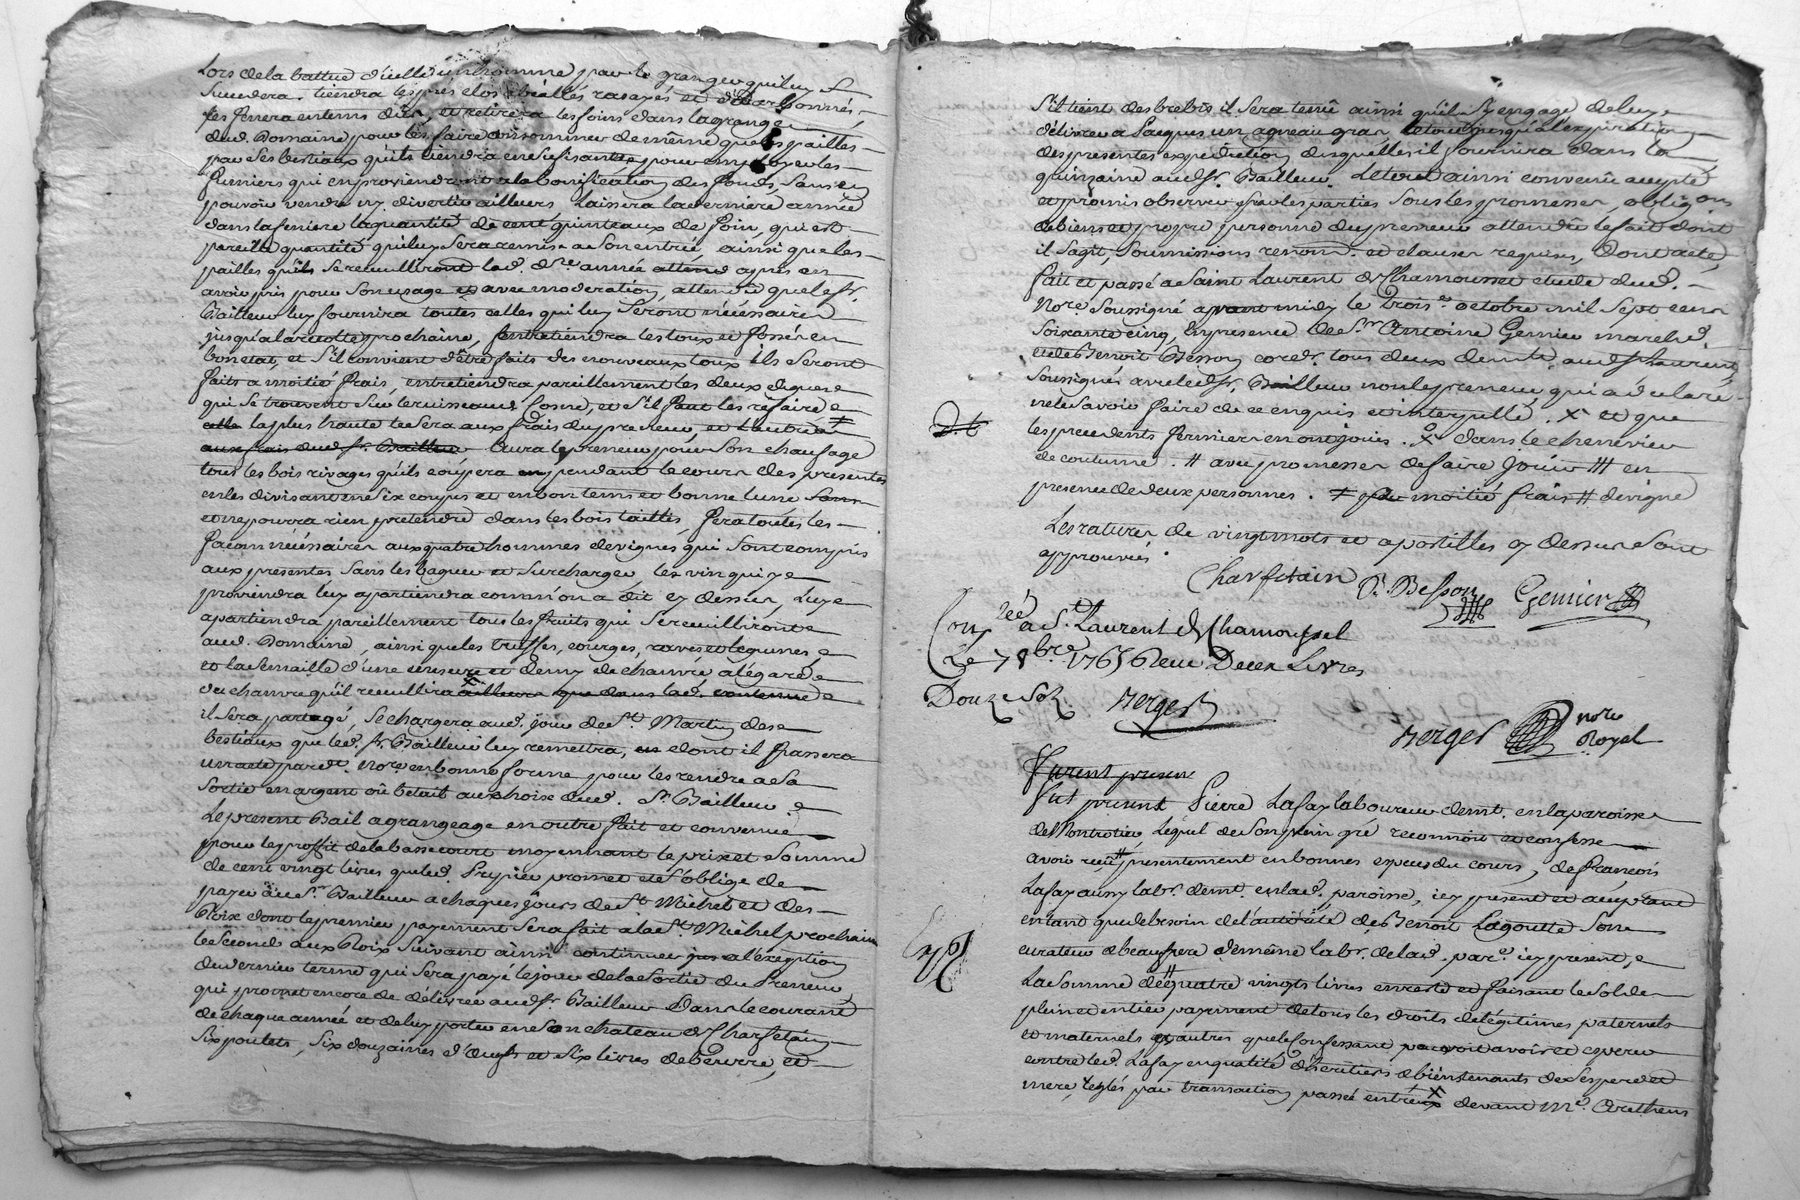 Lors de la battue d'icelle un homme par le granger qui luy
succedera. tiendra les prés clos et bialles rasayés et
les fenera en tems du, et retirera les foins dans la grange
dud. Domaine pour les faire consommer de même que les pailles
par ses bestiaux qu'ils tiendra en sufisante pour employer les
fumiers qui en proviendront a la bonification des fonds, sans en
pouvoir vendre ny divertir ailleurs laissera la derniere année
dans la feniere la quantité de cent quinteaux de foin, qui est
pareille quantité qui luy sera remise a son entrée, ainsi que les
pailles qu'ils se recuilliront lad. dre année attend après en
avoir pris pour son usage et avec moderation, attendu que le sr.
Bailleur luy fournira toutes celles qui luy seront nécéssaires
jusqu'a la recolte prochaine, entretiendra les toux et fossés en
bon etat, et s'il convient d'être faits des nouveaux toux ils seront
faits a moitié frais, entretiendra pareillement les deux digues
qui se trouvent sur le ruisseau de Cosne, et s'il faut les refaire
celle la plus haute le sera aux frais du preneur, et l'autre a
aux frais dud. sr. Bailleur Aura le preneur pour son chaufage
tous les bois rivages qu'ils coupera en pendant le cours des presentes
en les divisant en six coupes et en bon tems et bonne lune sans
et ne pourra rien pretendre dans les bois tailles, fera toutes les
facons nécéssaires aux quatre hommes de vignes qui sont compris
aux presentes sans les baguer et surcharger les vin qui en
proviendra luy apartiendra comm'on a dit cy dessus, luy
apartiendra pareillement tous les fruits qui se recuilliront
aud. Domaine, ainsi que les truffes, courges, raves et legumes,
et la semaille d'une mesure et demy de chanvre a l'égard
du chanvre qu'il recuillira ailleurs que dans lad. contenue
il sera partagé, se chargera aud. jour de St. Martin des
bestiaux que led. sr. Bailleur luy remettra, et dont il passera
un acte pardt. Nore en bonne forme pour les rendre a sa
sortie en argent ou bétail au choix dud. Sr. Bailleur
Le present Bail a grangeage en outre fait et convenu
pour le proffit de la basse court moyennant le prix et somme
de cent vingt livres que led. Fropier promet et s'oblige de
payer aud. sr. Bailleur a chaques jours de St. Michel et des
Roix dont le premier payement sera fait a la St. Michel prochain
le second aux Roix suivant ainsi continuer jus a l'éxeption
du dernier terme qui sera payé le jour de la sortie du Preneur,
qui promet encore de délivrer aud. sr Bailleur dans le courant
de chaque année et de luy porter en son chateau de Charfetain
six poulets, six douzaines d'œufs et six livres de beurre, et
S'il tient des brebis il sera tenû ainsi qu'il s'y engage de luy
délivrer a Pacques un agneau gras le tout jusqu'a l'expiration
des presentes expedition desquelles il fournira dans la
quinzaine aud. sr. Bailleur. Le tout ainsi convenû accepté
et promis observer par les parties sous les promesses, obligons
de biens et propre personne du preneur attendû le fait dont
il s'agit, soumissions renon. et clauses requises, Dont acte,
fait et passé a Saint Laurent de Chamousset etude dud.
Nore. soussigné avant midy le trois e. octobre mil sept cens
soixante cinq, En presence de Sr. Antoine Gemier marchd.
et de Benoit Besson cordr. tous deux demts. aud. St Laurent
soussignés avec led. sr. Bailleur non le preneur, qui a declaré
ne le savoir faire de ce enquis et interpellé. X et que
les precedents fermiers en ont jouis. X dans le chenevier
de coutume. # avec promesses de faire jouir ### en
presence de deux personnes. ≠ par moitié frais # de vigne
Les ratures de vingt mots et apostilles cy dessus sont
approuvés
Charfetain B. Besson Gemier
D. t
Conlée a St. Laurent de Chamousset
Le 7 8bre. 1765 Reçu Deux Livres
Douze Sols. Berger
Berger nore Royal
Furent presens
Fut present Pierre Lafay laboureur demt. en la paroisse
de Montrotier Lequel de son plein gré reconnoit et confesse
avoir reçû # presentement en bonnes especes du cours, de François
Lafay aussy labr. demt. en lad. paroisse, icy present et acceptant
en tant que de besoin de l'autorité de Benoit Lagoutte son
curateur & beaupere demême labr. de lad. parse. icy present,
La somme de # quatre vingts livres en reste et faisant le solde
plein et entier payement de tous les droits de légitimes paternels
et maternels et autres que le confessant pouvoit avoir et esperer
contre led. Lafay en qualité d'héritiers & bientenants de ses pere et
mere, reglés par transaction passée entreux X devant Me.